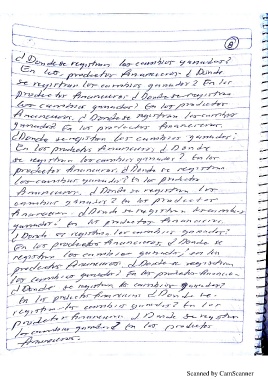 8
¿Donde se registran los cambios ganados?
En los productos financieros. ¿Donde
se registran los cambios ganados? En los
productos financieros. ¿Donde se registran
los cambios ganados? En los productos
financieros. ¿Donde se registran los cambios
ganados? En los productos financieros.
¿Donde se registran los cambios ganados?
En los productos financieros. ¿Donde
se registran los cambios ganados? En los
productos financieros. ¿Donde se registran
los cambios ganados? En los productos
financieros. ¿Donde se registran los
cambios ganados? En los productos
financieros. ¿Donde se registran los cambios
ganados? En los productos financieros.
¿Donde se registran los cambios ganados?
En los productos financieros. ¿Donde se
registran los cambios ganados? en los
productos financieros. ¿Donde se registran
los cambios ganados? En los productos financieros.
¿Donde se registran los cambios ganados?
En los productos financieros ¿Donde se
registran los cambios ganados? En los
productos financieros ¿Donde se registran
los cambios ganados? En los productos
financieros.
Scanned by CamScanner